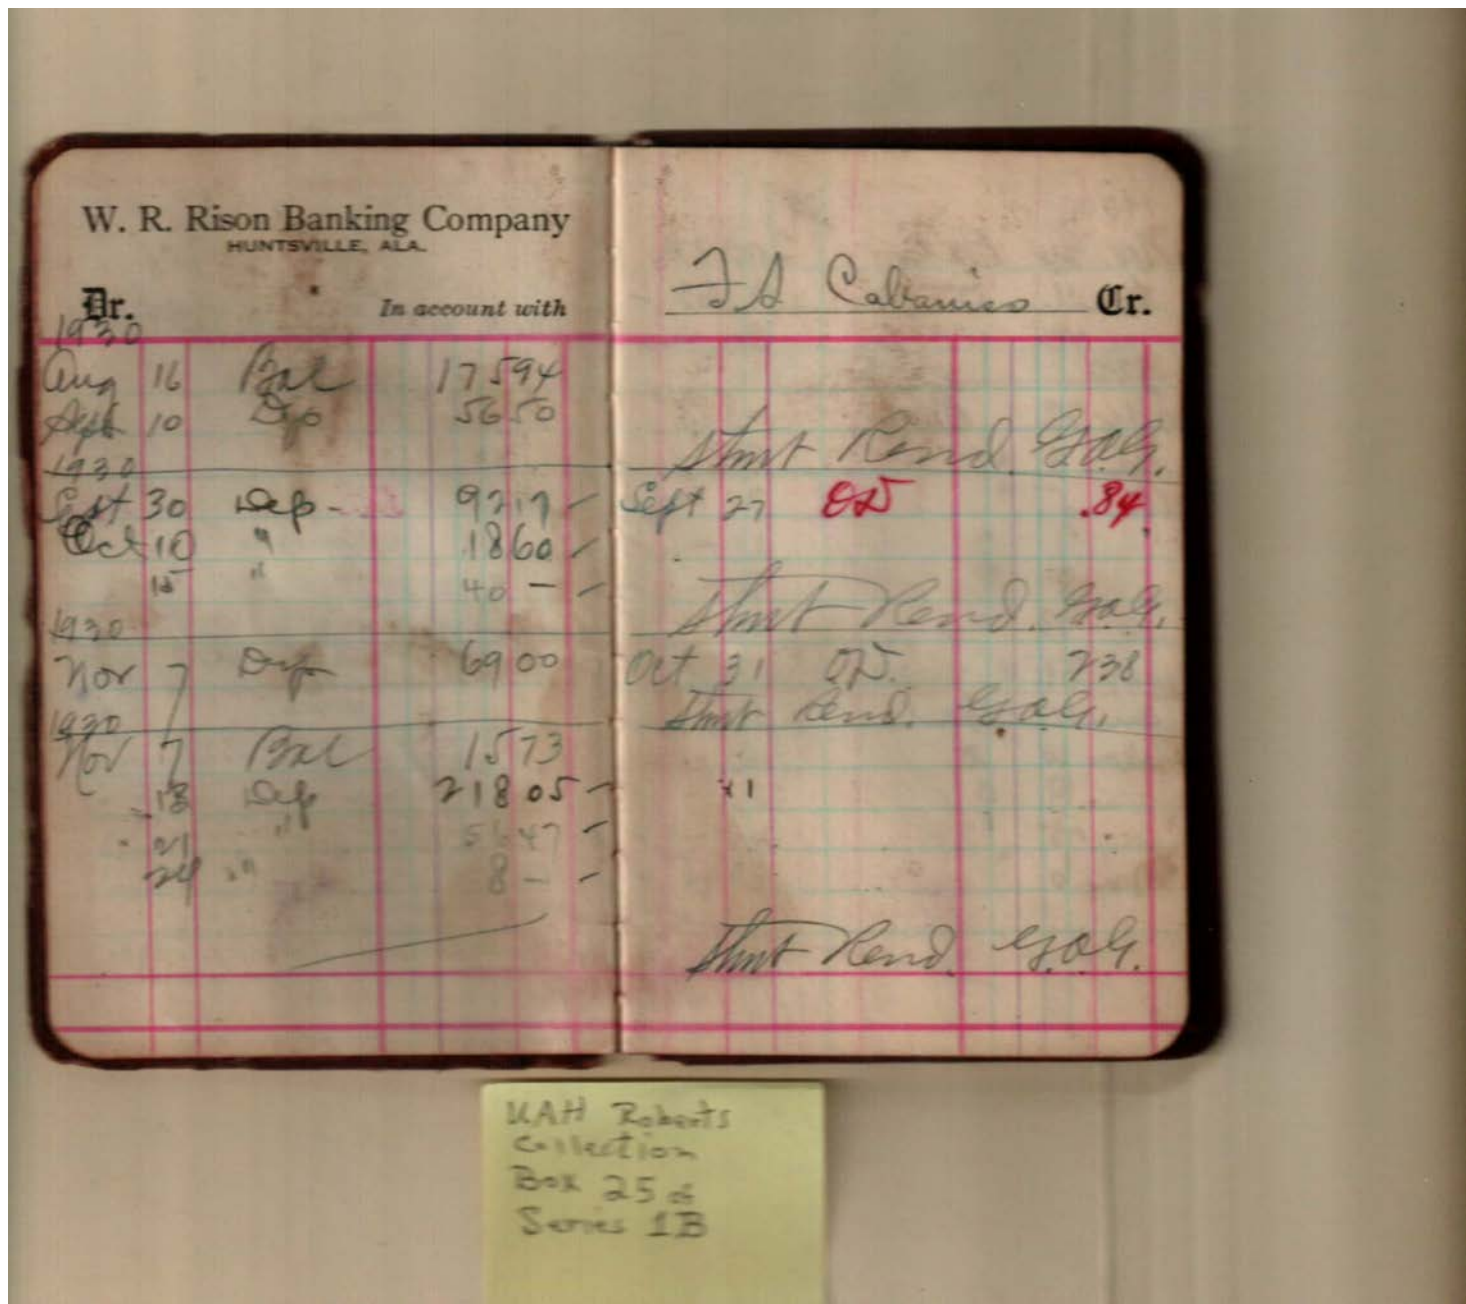 W. R. Rison Banking Company
HUNTSVILLE, ALA.
Dr. In account with
1930
Aug 16 Bal 175 94
Sept 10 Dep 56 50
1930
Sept 30 Dep - 92 17 -
Oct 10 " 18 60 -
15 " 40 - -
1930
Nov 7 Dep 69 00
1930
Nov 7 Bal 15 73
18 Dep 218 05 -
21 " 56 47 -
24 " 8 - -
F S Cabaniss Cr.
Stmt Rend. G.O.G.
Sept 27 OD .84
Stmt Rend. G.O.G.
Oct 31 OD. 2 38
Stmt Rend. G.O.G.
Stmt Rend. G.O.G.
UAH Roberts
Collection
Box 25 of
Series 1B